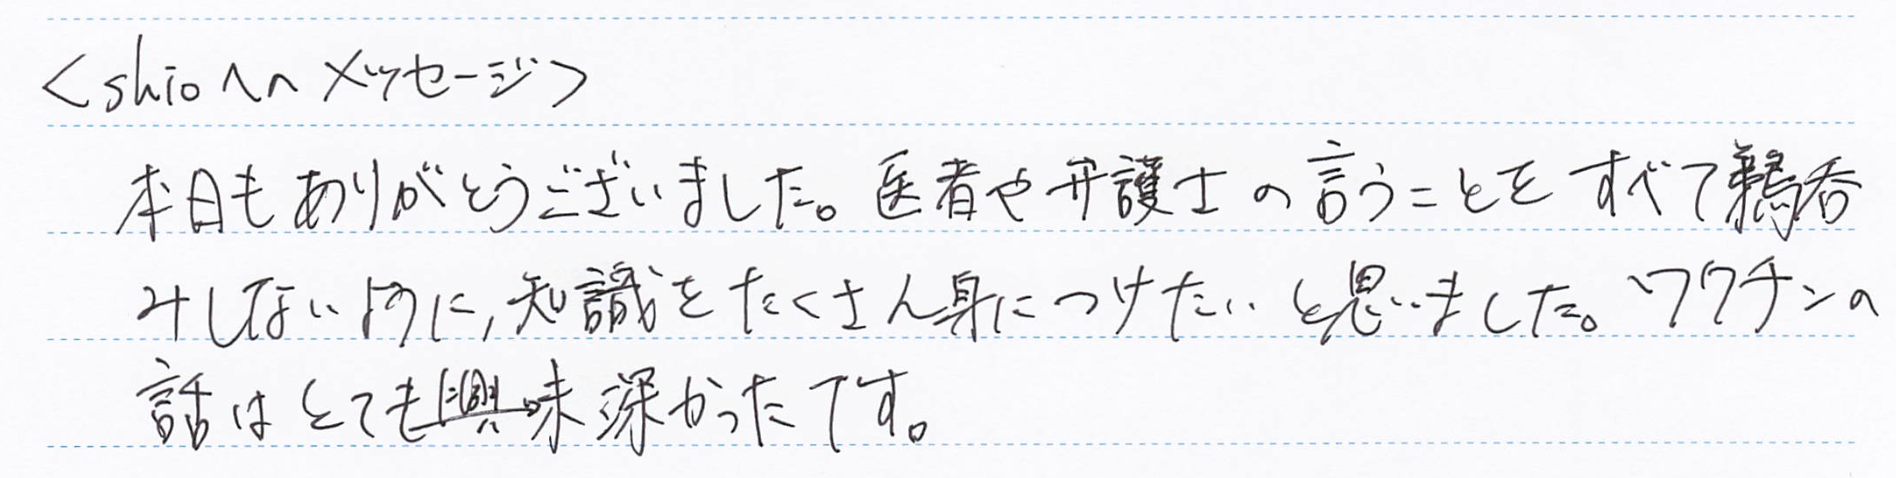 <shioへのメッセージ>
本日もありがとうございました。医者や弁護士の言うことをすべて鵜呑
みしないように,知識をたくさん身につけたいと思いました。ワクチンの
話はとても興味深かったです。